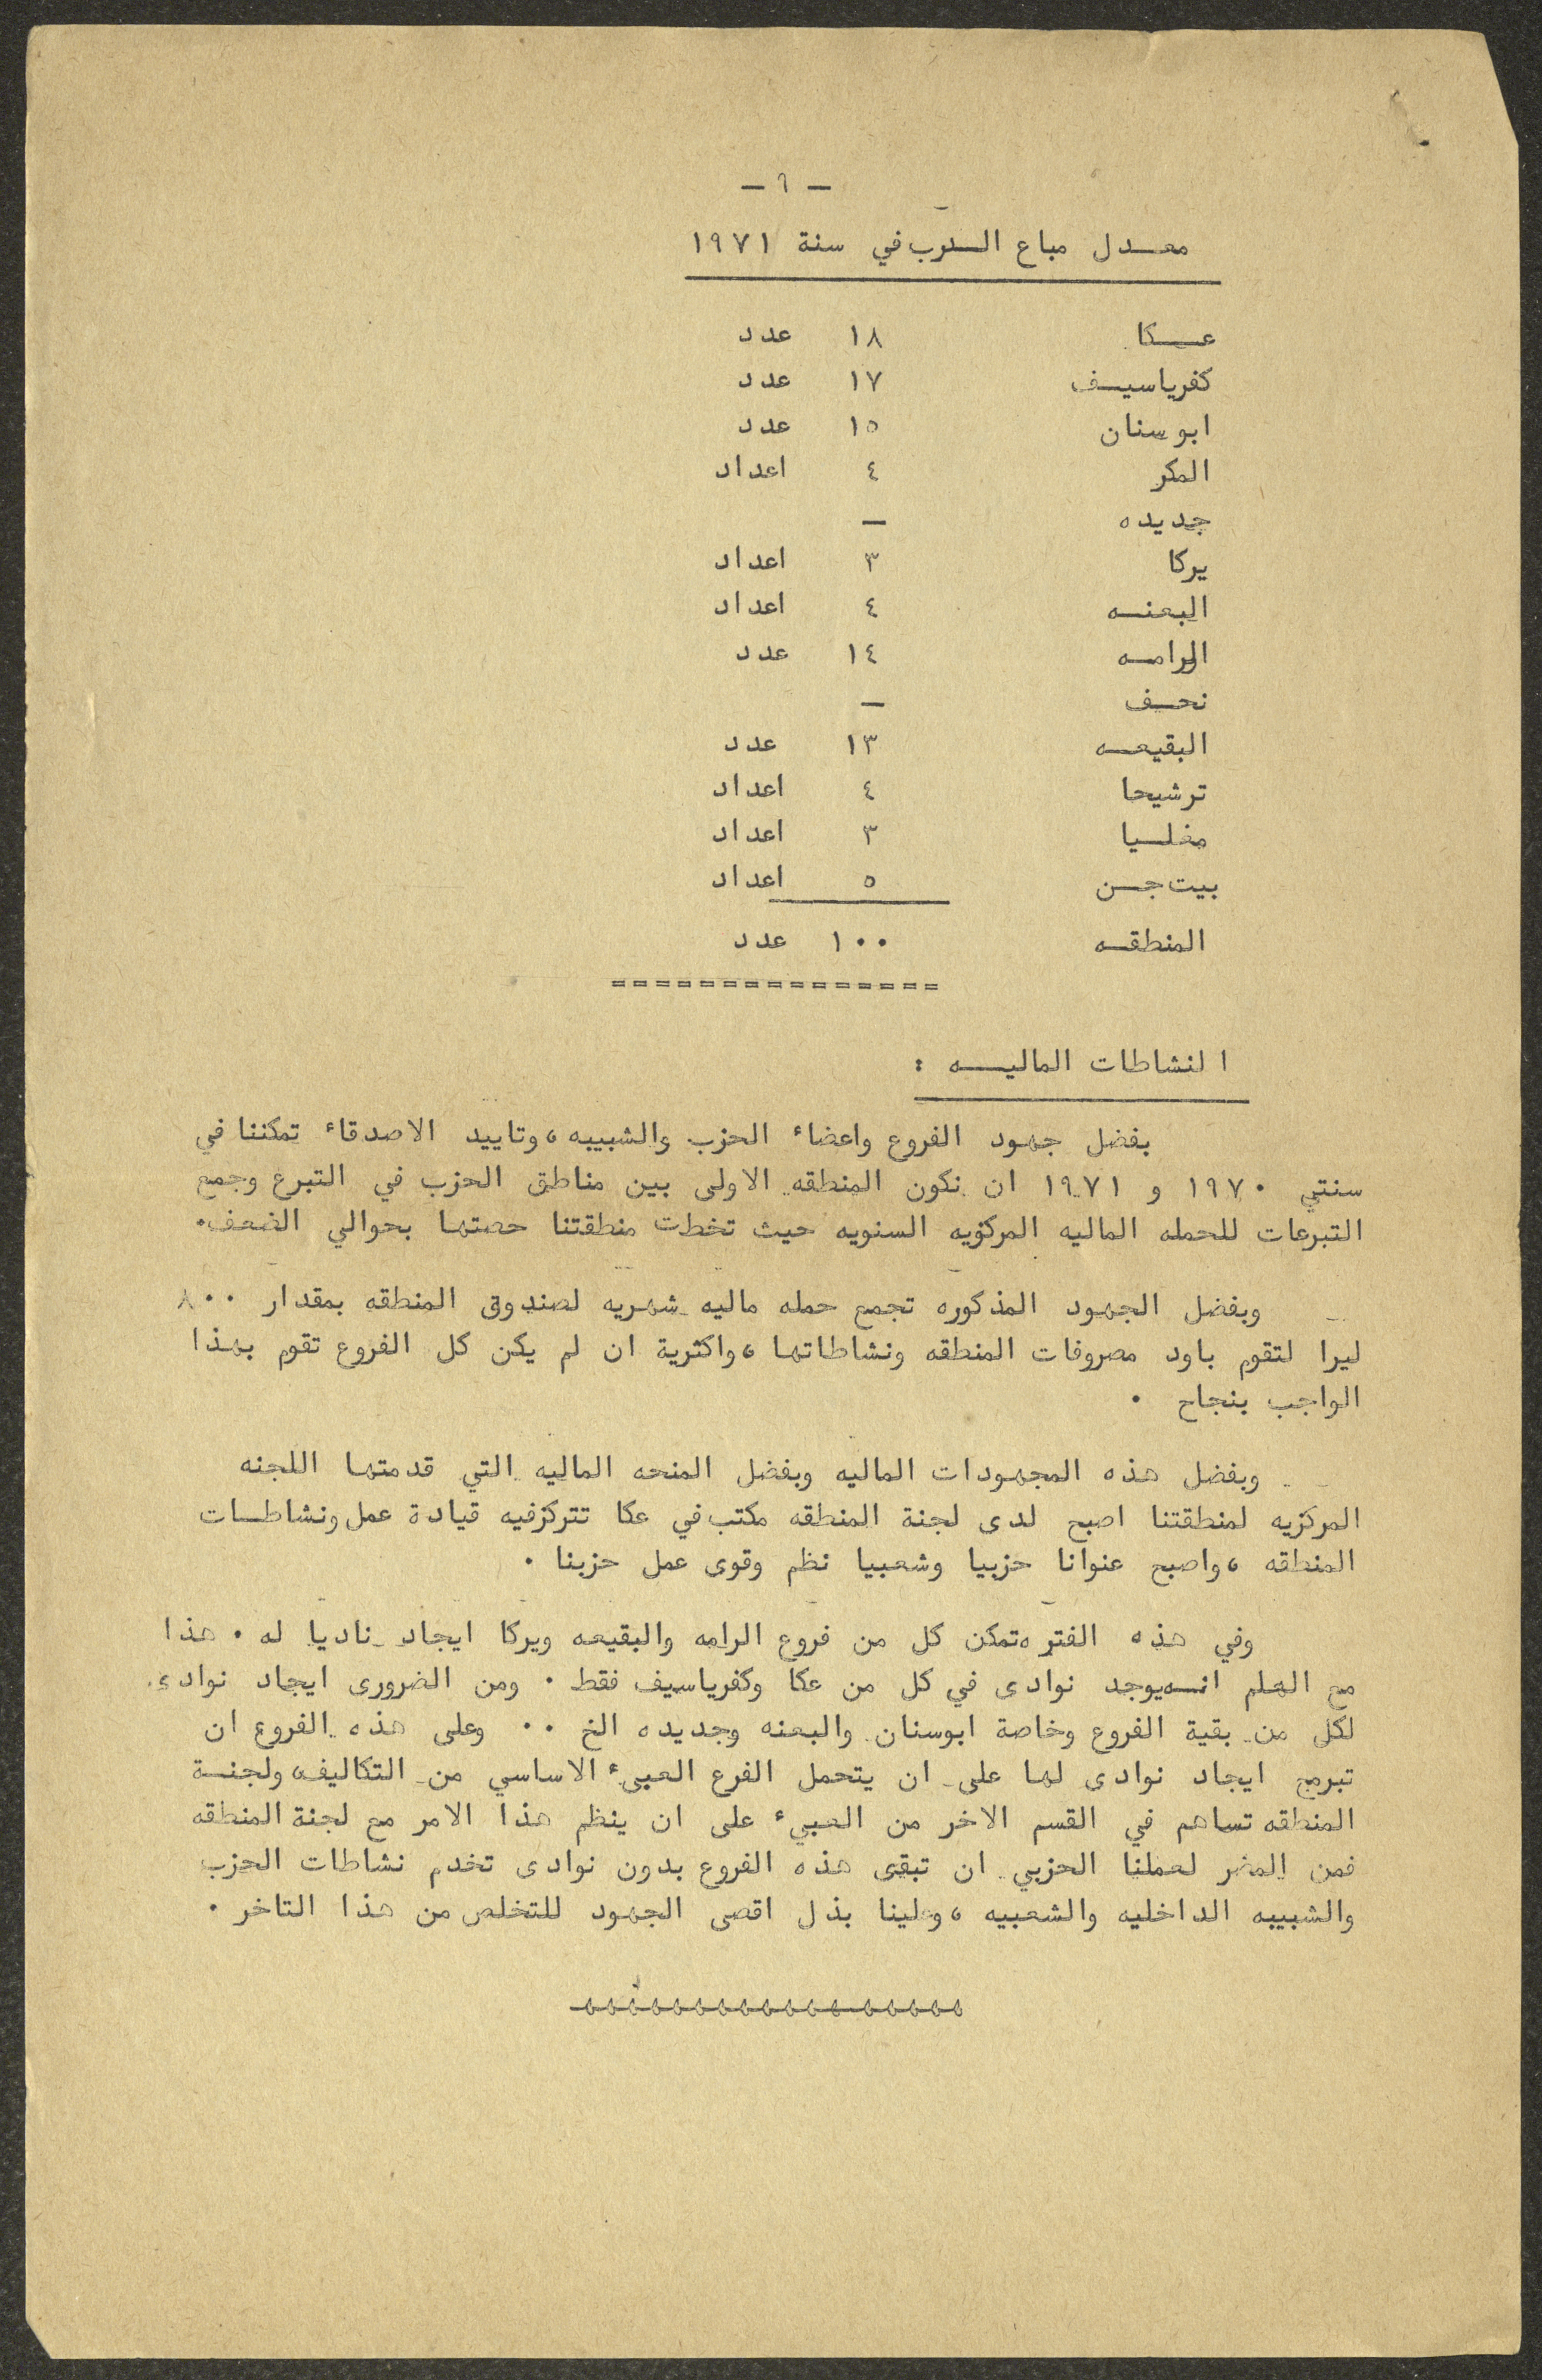 - ٦ -
معدل مباع الدرب في سنة ١٩٧١
عكا ١٨ عدد
كفرياسيف ١٧ عدد
ابو سنان ١٥ عدد
المكر ٤ اعداد
جديده -
يركا ٣ اعداد
البعنه ٤ اعداد
الرامه ١٤ عدد
نحف -
البقيعه ١٣ عدد
ترشيحا ٤ اعداد
معلسيا ٣ اعداد
بيت جسن ٥ اعداد
المنطقه ١٠٠ عدد
===============
النشاطات الماليه :
بفضل جهود الفروع واعضاء الحزب والشبيبه، وتاييد الاصدقاء تمكننا في
سنتي ١٩٧٠ و ١٩٧١ ان نكون المنطقه الاولى بين مناطق الحزب في التبرع وجمع
التبرعات للحمله الماليه المركزيه السنويه حيث تخطت منطقتنا حصتها بحوالي الضعف.
وبفضل الجهود المذكوره تجمع حمله ماليه شهريه لصندوق المنطقه بمقدار ٨٠٠
ليرا لتقوم باود مصروفات المنطقه ونشاطاتها، واكثرية ان لم يكن كل الفروع تقوم بهذا
الواجب بنجاح .
وبفضل هذه المجهودات الماليه وبفضل المنحه الماليه التي قدمتها اللجنه
المركزيه لمنطقتنا اصبح لدى لجنة المنطقه مكتب في عكا تتركزفيه قيادة عمل ونشاطات
المنطقه، واصبح عنوانا حزبيا وشعبيا نظم وقوى عمل حزبنا .
وفي هذه الفتره تمكن كل من فروع الرامه والبقيعه ويركا ايجاد ناديا له . هذا
مع العلم انه يوجد نوادى في كل من عكا وكفرياسيف فقط . ومن الضرورى ايجاد نوادى
لكل من بقية الفروع وخاصة ابوسنان والبعنه وجديده الخ .. وعلى هذه الفروع ان
تبرمج ايجاد نوادى لها على ان يتحمل الفرع العبىء الاساسي من التكاليف، ولجنة
المنطقه تساهم في القسم الاخر من العبيء على ان ينظم هذا الامر مع لجنة المنطقه
فمن المضر لعملنا الحزبي ان تبقى هذه الفروع بدون نوادى تخدم نشاطات الحزب
والشبيبه الداخليه والشعبيه، وعلينا بذل اقصى الجهود للتخلص من هذا التاخر .